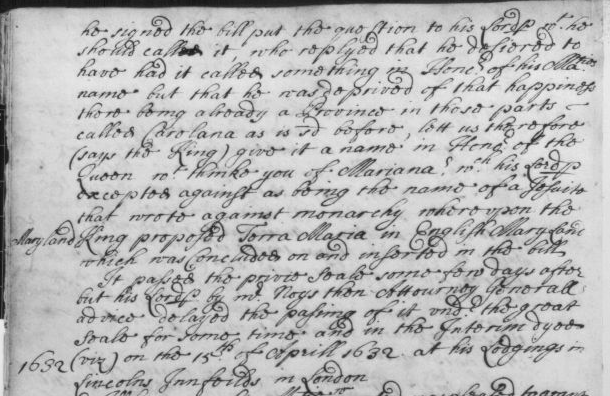 he signed the bill put the question to his Lordsp wt. he
should call it, who replyed that he desiered to
have had it called something in Honor. of his Maties
name but that he was deprived of that happiness
there being already a Province in those parts
called Carolana as is sd before, lett us therefore
(says the King) give it a name in Honor. of the
Queen wt. thinke you of Mariana? wch his Lordsp
excepted against as being the name of a Jesuite
that wrote against monarchy whereupon the
Maryland King proposed Terra Maria in English Maryland
which was concluded on and inserted in the bill
It passed the privie Seale some few days after
but his Lordsp by mr. Noys then Attourney Generall
advice delayed the passing of it undr. the great
Seale for some time and in the Interim dyed
1632 (viz) on the 15th of Aprill 1632 at his Lodgings in
Lincolns Innfeilds in London